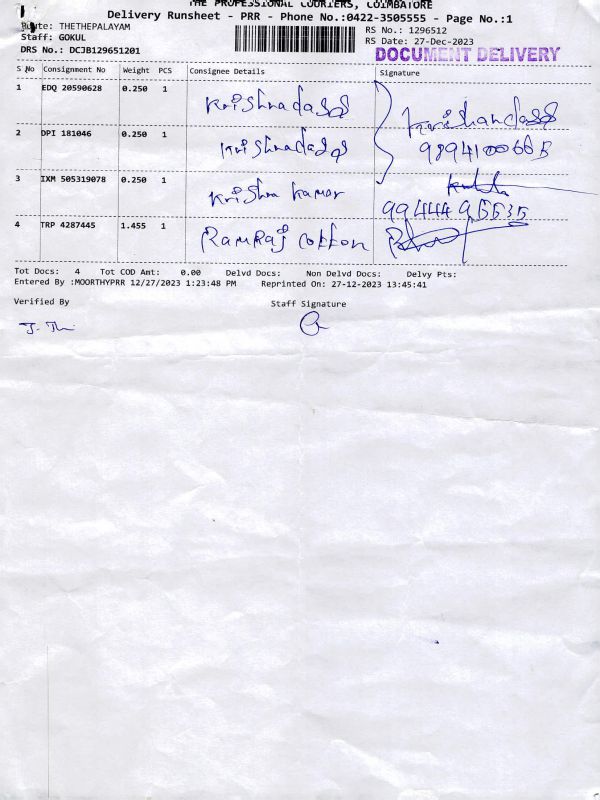 THE PROFESSIONAL COURIERS, COIMBATORE
Delivery Runsheet - PRR - Phone No.:0422-3505555 - Page No.:1
Route: THETHEPALAYAM
RS No.: 1296512
Staff: GOKUL
RS Date: 27-Dec-2023
DRS No.: DCJB129651201
DOCUMENT DELIVERY
S No Consignment No Weight PCS Consignee Details Signature
1 EDQ 20590628 0.250 1 Krishnadass
Krishandass
2 DPI 181046 0.250 1 Krishnadass
3 IXM 505319078 0.250 1 Krishna kumar
99444 95535
4 TRP 4287445 1.455 1 Ramraj cotton
Tot Docs: 4 Tot COD Amt: 0.00 Delvd Docs: Non Delvd Docs: Delvy Pts:
Entered By :MOORTHYPRR 12/27/2023 1:23:48 PM Reprinted On: 27-12-2023 13:45:41
Verified By Staff Signature